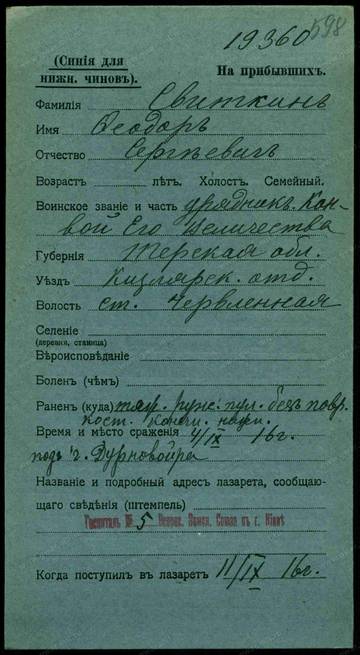 598
19360
(Синія для
нижн. чиновъ).
На прибывшихъ.
Фамилія Свиткинъ
Имя Ѳеодоръ
Отчество Сергѣевичъ
Возрастъ лѣтъ. Холост. Семейный.
Воинское званіе и часть урядникъ Кон-
вой Его Величества
Губернія Терская обл.
Уѣздъ Кизлярск. отд.
Волость ст. Червленная
Селеніе
(деревня, станица)
Вѣроисповѣданіе
Боленъ (чѣмъ)
Раненъ (куда) тяж. руж. пул. безъ повр.
кост.
Время и мѣсто сраженія 4/IX 16 г.
подъ г.
Названіе и подробный адресъ лазарета, сообщаю-
щаго свѣдѣнія (штемпель)
Госпиталь № 5 Союза въ г. Кіевѣ
Когда поступилъ въ лазаретъ 11/IX 16 г.